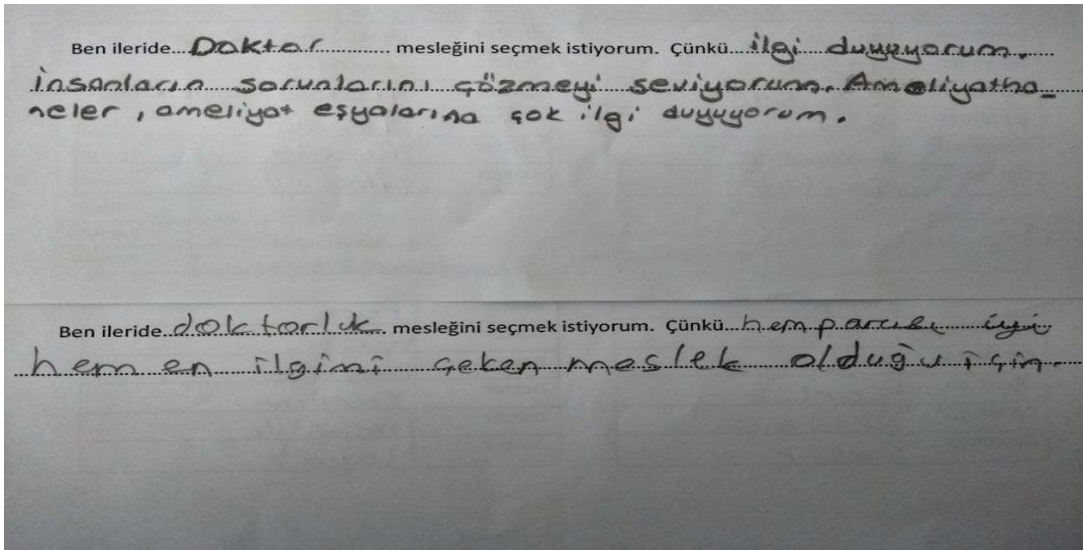 Ben ileride...Doktor............ mesleğini seçmek istiyorum. Çünkü...ilgi duyuyorum.
insanların sorunlarını çözmeyi seviyorum. Ameliyatha_
neler, ameliyat eşyalarına çok ilgi duyuyorum.
Ben ileride..doktorluk. mesleğini seçmek istiyorum. Çünkü...hem parası iyi
hem en ilgimi çeken meslek olduğu için.